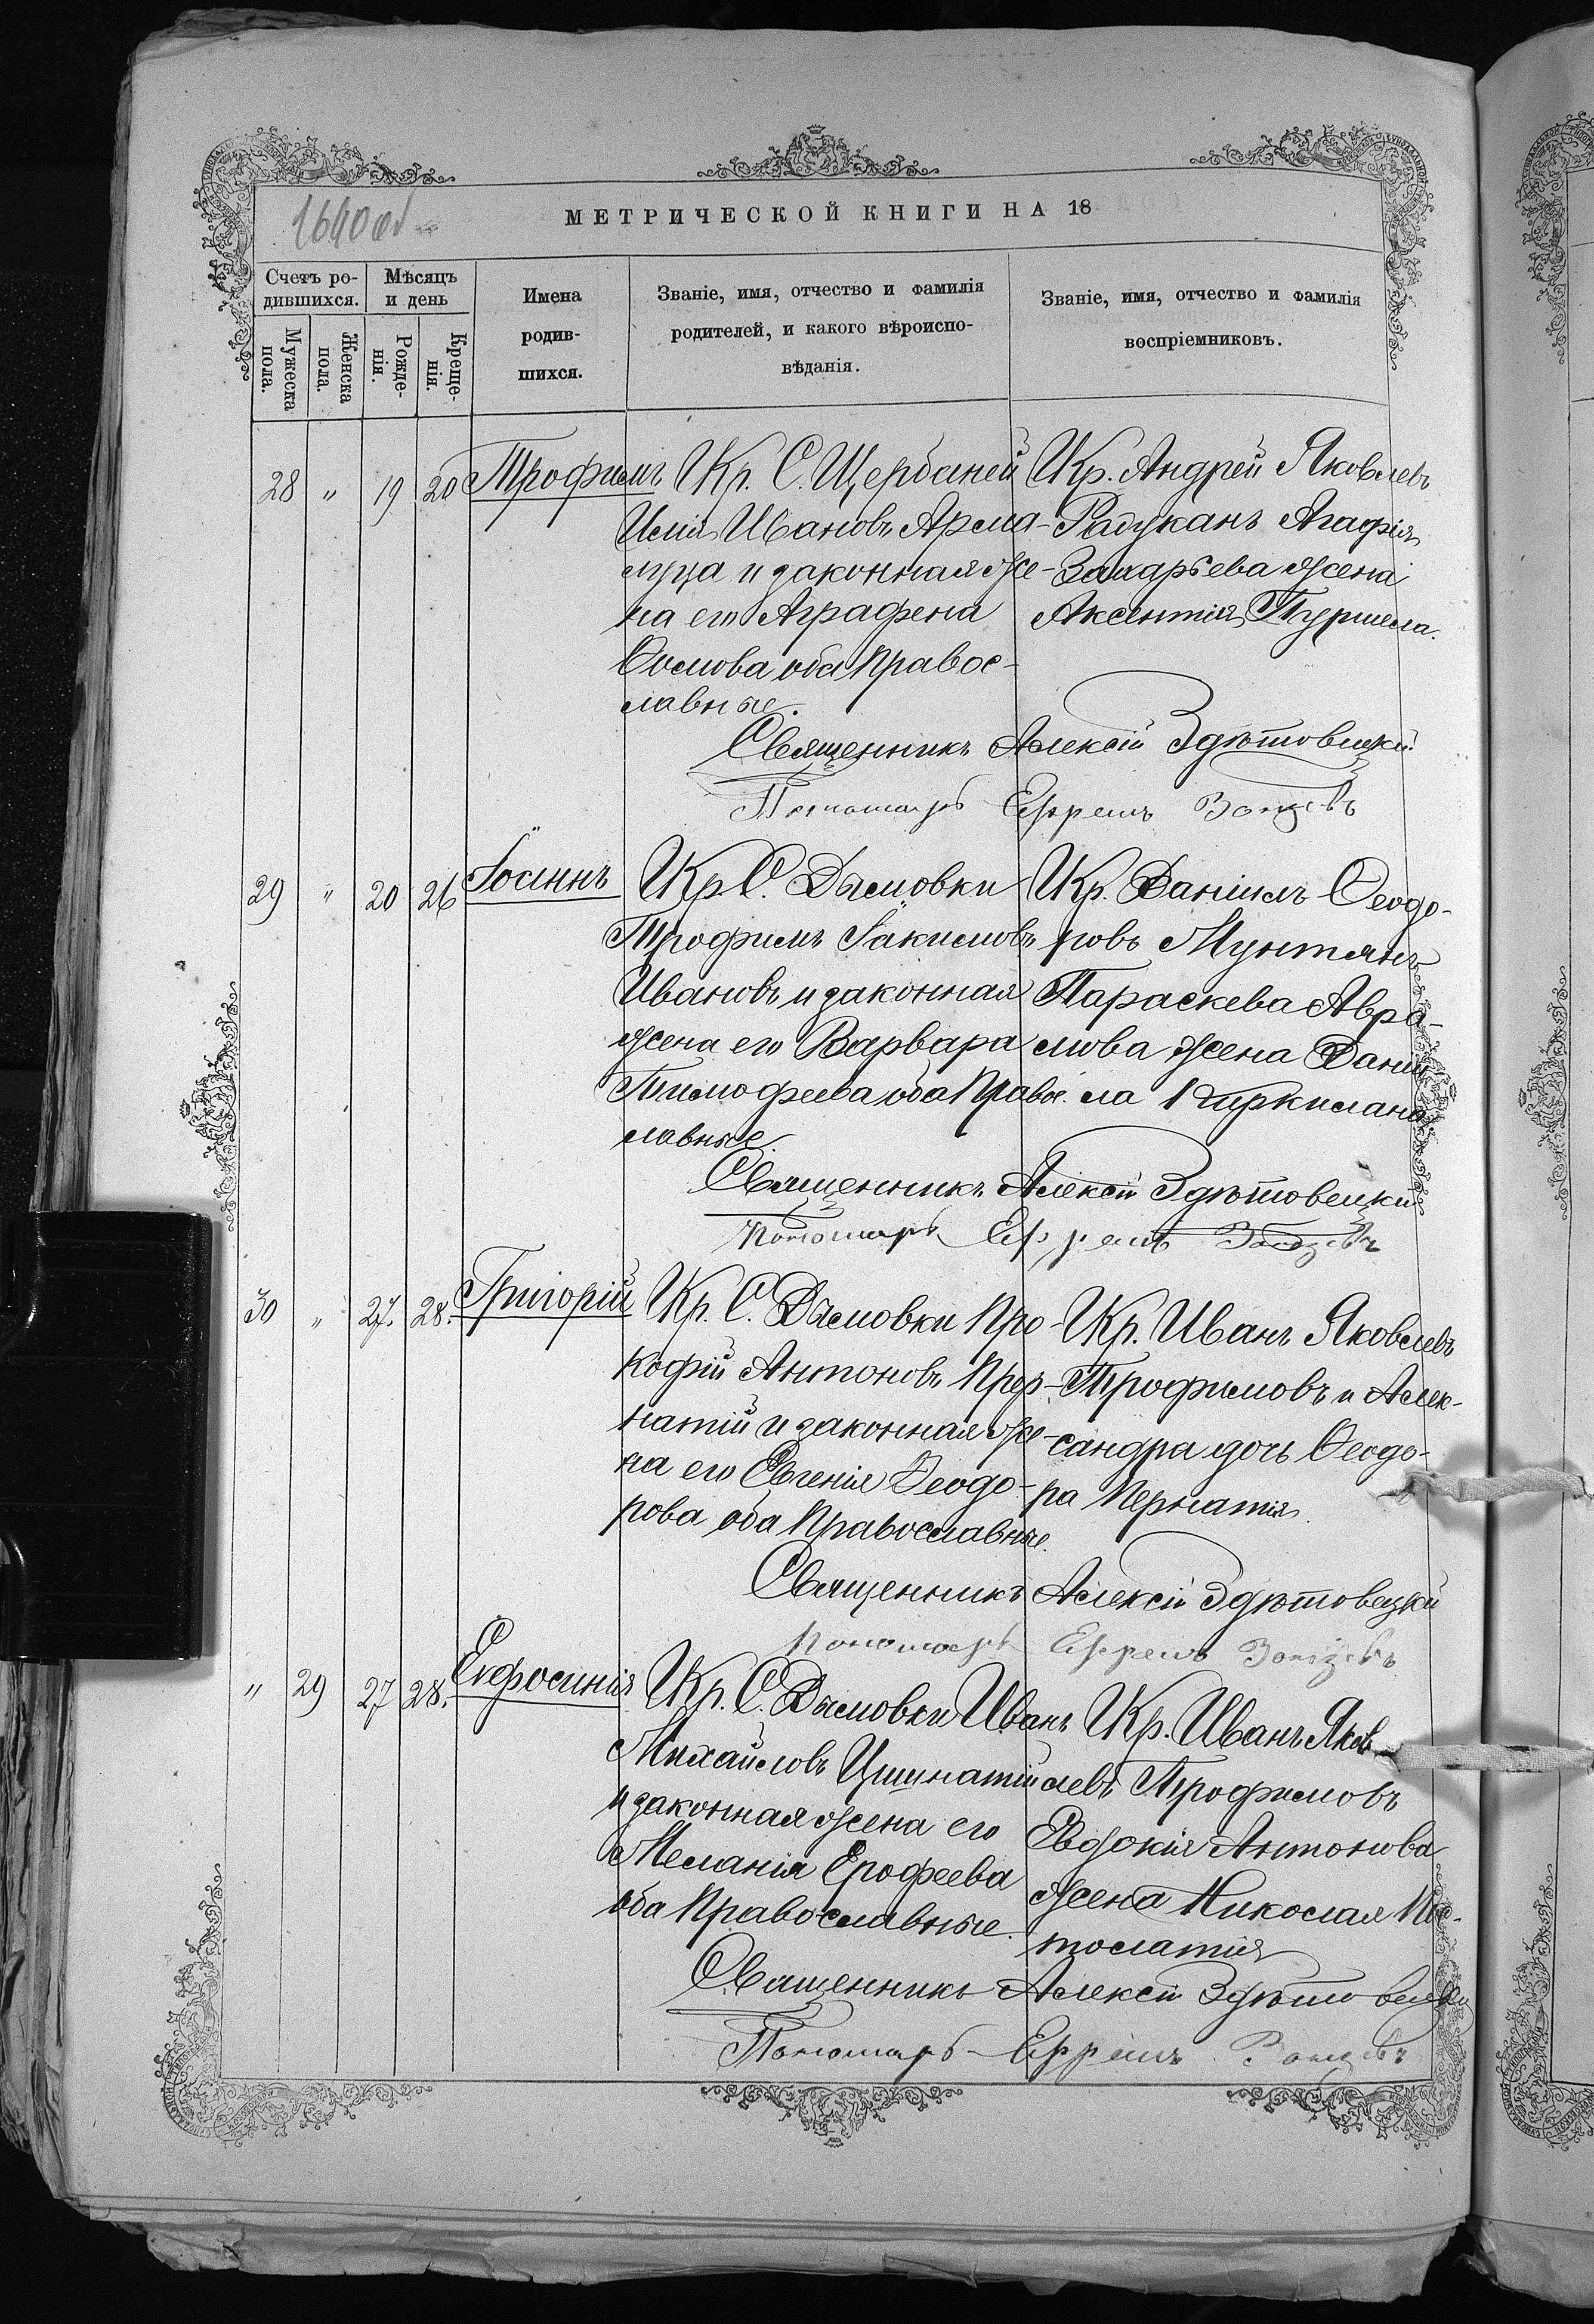 1640 об
МЕТРИЧЕСКОЙ КНИГИ НА 18
Счетъ ро-
дившихся.
Мѣсяцъ
и день
Мужеска
пола.
Женска
пола.
Рожде-
нія.
Креще-
нія.
Имена
родив-
шихся.
Званіе, имя, отчество и фамилія
родителей, и какого вѣроиспо-
вѣданія.
Званіе, имя, отчество и фамилія
воспріемниковъ.
28 " 19 20 Трофимъ
Кр. С. Щербаней
Исаія Ивановъ Арма-
луца и законная же-
на его Аграфена
Ѳомова оба Правос-
лавные.
Кр. Андрей Яковлевъ
Радуканъ Агафія
Захарьева жена
Аксентія
Священникъ Алексій Здѣтовецкій
Пономарь Ефремъ
29 " 20 26 Іоаннъ
Кр. С. Дымовки
Трофимъ Іакимовъ
Ивановъ и законная
жена его Варвара
Тимофеева оба Правос.
лавные.
Кр. Даніилъ Ѳеодо-
ровъ Мунтянъ
Параскева Авра-
мова жена Дании
ла
Священникъ Алексій Здѣтовецкій
Пономарь Ефремъ
30 " 27. 28. Григорій
Кр. С. Дымовки Про-
кофій Антоновъ Пер-
натій и законная же-
на его Евгенія Ѳеодо-
рова оба Православные.
Кр. Иванъ Яковлевъ
Трофимовъ и Алек-
сандра дочь Ѳеодо-
ра Пернатія.
Священникъ Алексій Здѣтовецкій
Пономарь Ефремъ
" 29 27 28. Евфросинія
Кр. С. Дымовки Иванъ
Михайловъ Цишнатій
и законная жена его
Меланія Ерофеева
оба Православные.
Кр. Иванъ Яков-
левъ Трофимовъ
Евдокія Антонова
жена Николая Пос-
толатія
Священникъ Алексій Здѣтовецкій
Пономарь Ефремъ